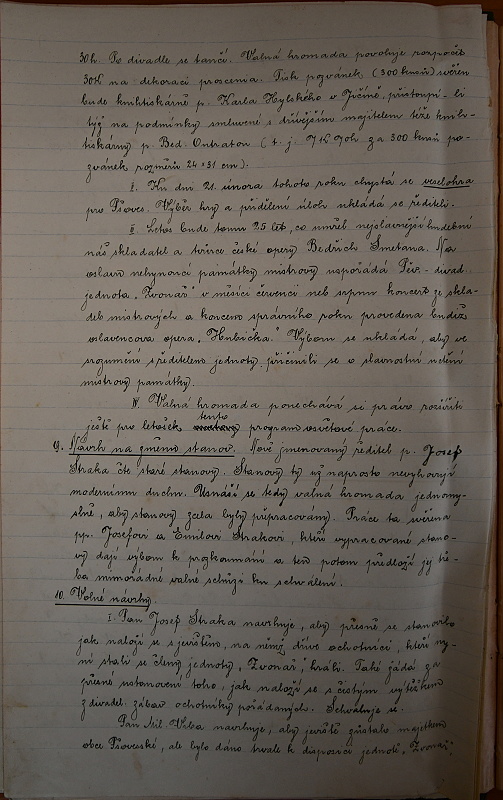 30 h. Po divadle se tančí. Valná hromada povoluje rozpočet
30 K na dekoraci proscenia. Tisk pozvánek (300 kusů) svěřen
bude knihtiskárně p. Karla Hylského v Jičíně, přistoupí-li
týž na podmínky smluvené s dřívějším majitelem téže knih-
tiskárny p. Bed. (t. j. 7 K 70 h za 300 kusů po-
zvánek rozměrů 24 × 31 cm).
I. Ku dni 21. února tohoto roku chystá se veselohra
pro Psoves. Výběr hry a přidělení úloh ukládá se řediteli.
II. Letos bude tomu 25 let, co umřel nejslavnější hudební
náš skladatel a tvůrce české opery Bedřich Smetana. Na
oslavu nehynoucí památky mistrovy uspořádá Pěv.-divad.
jednota „Zvonař" v měsíci červenci neb srpnu koncert ze skla-
deb mistrových a koncem správního roku provedena budiž
oslavencova opera „Hubička." Výboru se ukládá, aby ve
srozumění s ředitelem jednoty přičinili se o slavnostní uctění
mistrovy památky.
IV. Valná hromada ponechává si právo rozšířiti
ještě pro letošek tento program osvětové práce.
9. Návrh na změnu stanov. Nově jmenovaný ředitel p. Josef
Straka čte staré stanovy. Stanovy ty už naprosto nevyhovují
modernímu duchu. Usnáší se tedy valná hromada jednomy-
slně, aby stanovy zcela byly přepracovány. Práce ta svěřena
pp. Josefovi a Emilovi Strakovi, kteří vypracované stano-
vy dají výboru k prozkoumání a ten potom předloží jej tře-
ba mimořádné valné schůzi ku schválení.
10. Volné návrhy.
I. Pan Josef Straka navrhuje, aby přesně se stanovilo
jak naloží se s jevištěm, na němž dříve ochotníci, kteří ny-
ní stali se členy jednoty „Zvonař", hráli. Také žádá za
přesné ustanovení toho, jak naloží se s čistým výtěžkem
z divadel. zábav ochotníky pořádaných. Schvaluje se.
Pan Mil. Vrba navrhuje, aby jeviště zůstalo majetkem
obce Psoveské, ale bylo dáno trvale k disposici jednotě „Zvonař".